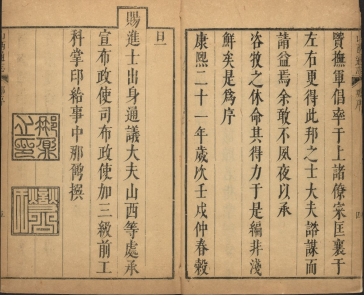 賢撫軍倡率于上諸僚寀匡襄于
左右更得此邦之士大夫諮諏而
請益焉余敢不夙夜以承
咨牧之休命其得力于是編非淺
鮮矣是爲序
康熙二十一年歲次壬戌仲春穀
旦
賜進士出身通議大夫山西等處承
宣布政使司布政使加三級前工
科掌印給事中那鼐撰